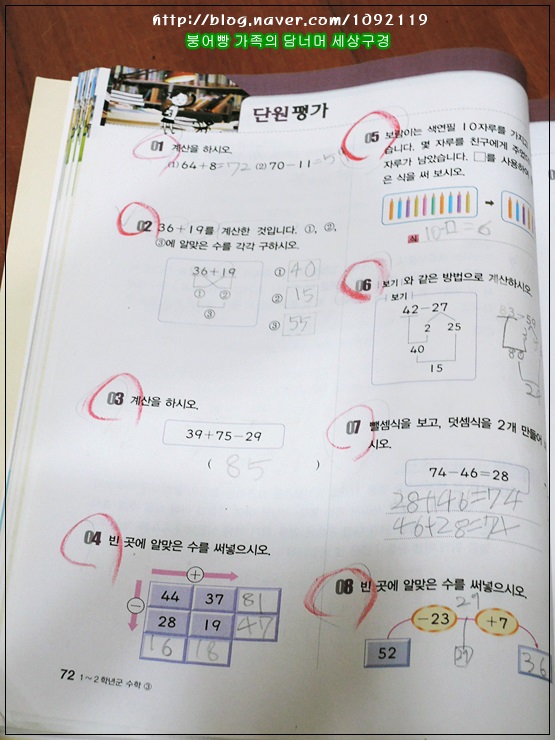 http://blog.naver.com/1092119
붕어빵 가족의 담너머 세상구경
단원평가
01 계산을 하시오.
(1) 64+8=72 (2) 70-11=5
02 36+19를 계산한 것입니다. ①, ②,
③에 알맞은 수를 각각 구하시오.
36+19
① ②
③
① 40
② 15
③ 55
03 계산을 하시오.
39+75-29
( 85 )
04 빈 곳에 알맞은 수를 써넣으시오.
+
-
44 37 81
28 19 47
16 18
72 1~2학년군 수학 ③
05 보람이는 색연필 10자루를 가지고
습니다. 몇 자루를 친구에게 주었
자루가 남았습니다. □를 사용하여
은 식을 써 보시오.
식 10-□=6
06 보기 와 같은 방법으로 계산하시오.
보기
42-27
2 25
40
15
83-59
80
07 뺄셈식을 보고, 덧셈식을 2개 만들어
시오.
74-46=28
28+46=74
46+28=74
08 빈 곳에 알맞은 수를 써넣으시오.
29
-23 +7
52 29 36